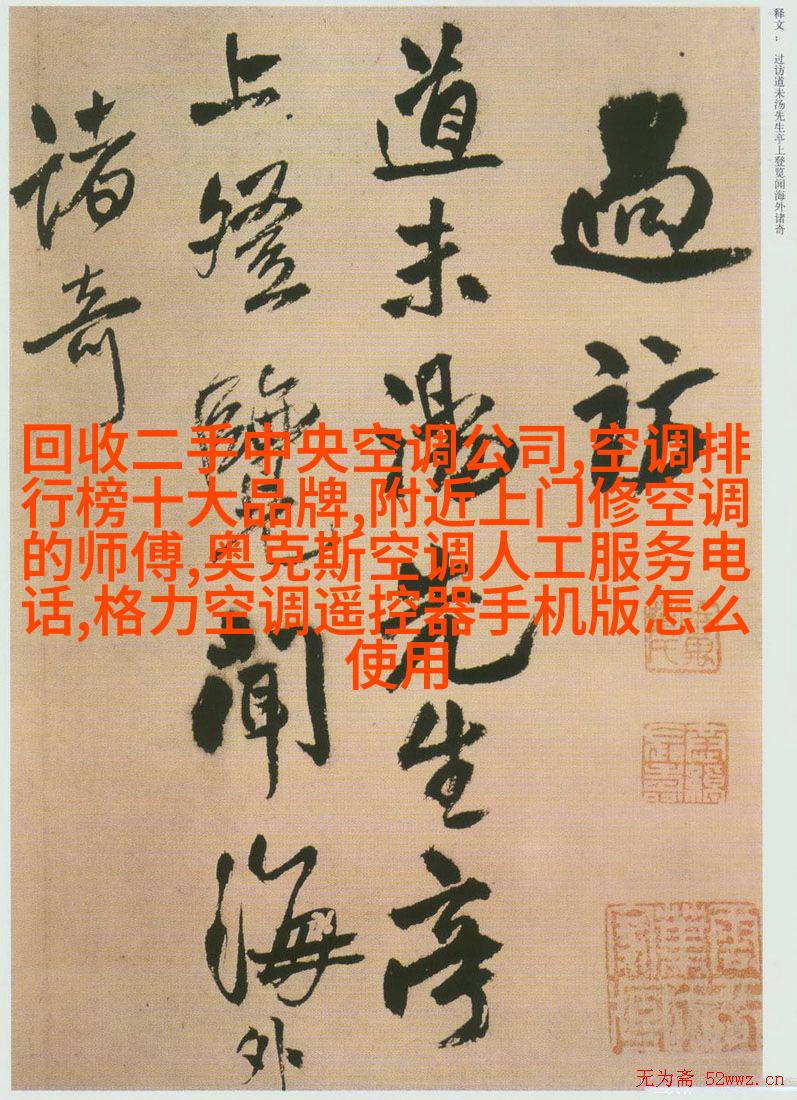 释文：　过访道未汤先生亭上登览闻海外诸奇
過訪
道未湯先生亭
上登覽聞海外
諸奇
回收二手中央空调公司,空调排
行榜十大品牌,附近上门修空调
的师傅,奥克斯空调人工服务电
话,格力空调遥控器手机版怎么
使用
无为斋 52wwz.cn